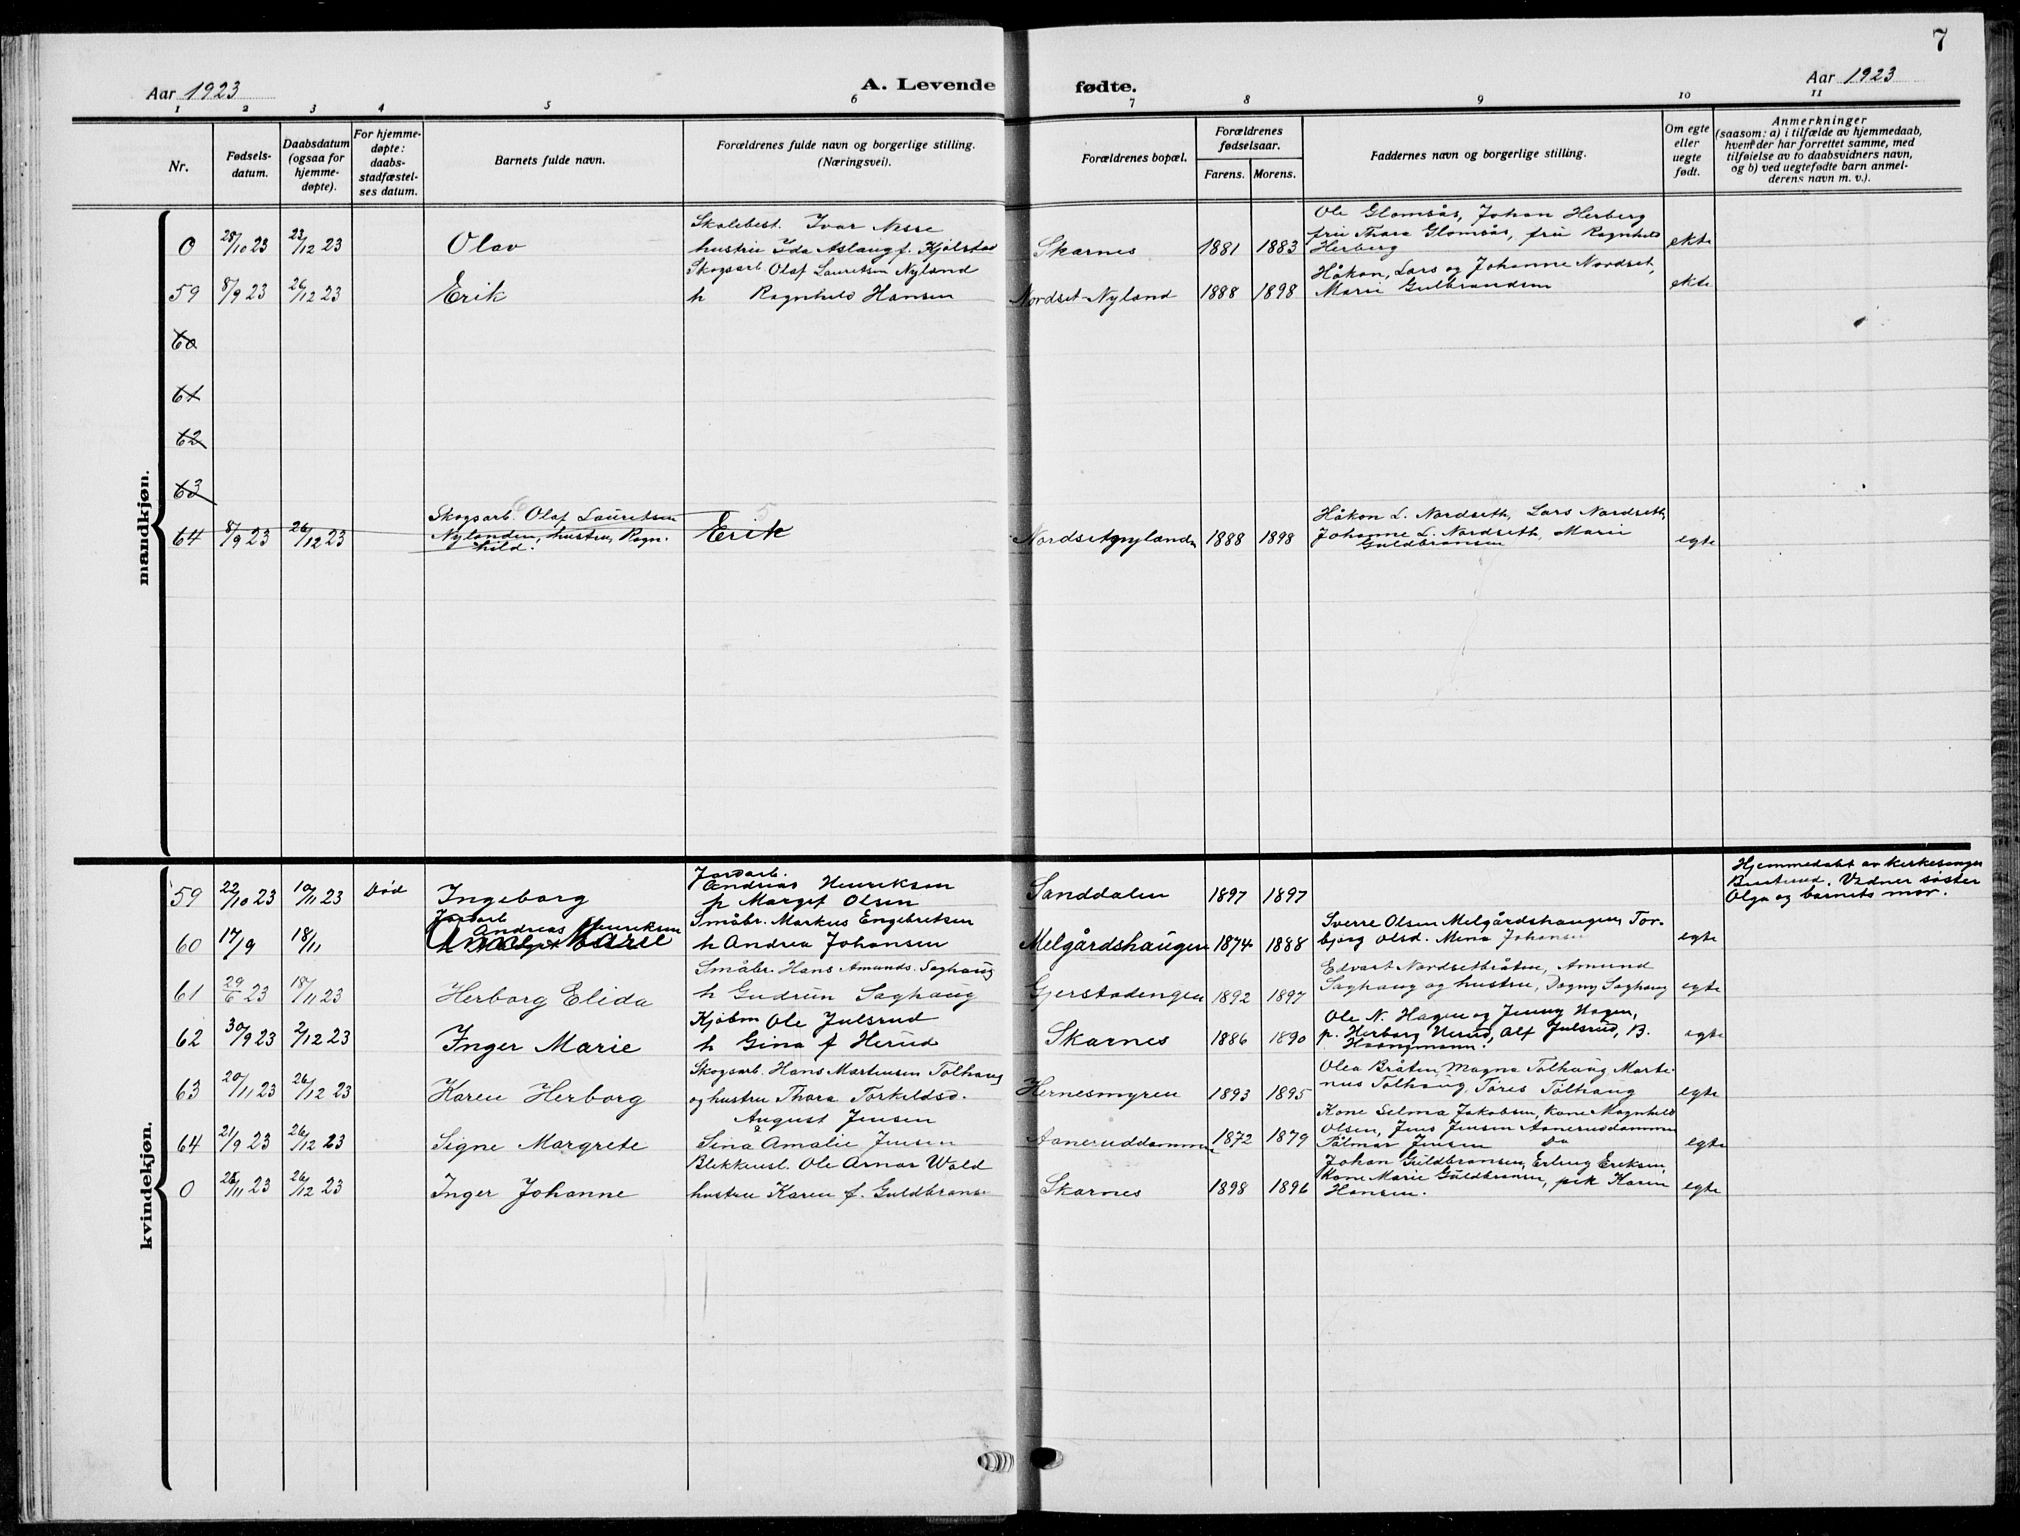 7
Aar 1923
A. Levende
fødte.
Aar 1923
1 2 3 4 5 6 7 8 9 10 11
Nr.
Fødsels-
datum.
Daabsdatum
(ogsaa for
hjemme-
døpte).
For hjemme-
døpte:
daabs-
stadfæstel-
ses datum.
Barnets fulde navn.
Forældrenes fulde navn og borgerlige stilling.
(Næringsvei).
Forældrenes bopæl.
Forældrenes
fødselsaar.
Farens. Morens.
Faddernes navn og borgerlige stilling.
Om egte
eller
uegte
født.
Anmerkninger
(saasom: a) i tilfælde av hjemmedaab,
hvem der har forrettet samme, med
tilføielse av to daabsvidners navn,
og b) ved uegtefødte barn anmel-
derens navn m. v.).
mandkjøn.
Skolebest. Ivar Nesse
Ole Glomsås, Johan Herberg
0 28/10 23 23/12 23 Olav hustru Ida Aslaug f. Kjølstad Skarnes 1881 1883 fru Thora Glomsås, fru Ragnhild
Herberg ekte
Skogsarb. Olaf Lauretsen Nyland
Håkon, Lars og Johanne Nordset,
59 8/9 23 26/12 23 Erik h Ragnhild Hansen Nordset-Nyland 1888 1898 Marie Gulbrandsen ekte
60
61
62
63
Skogsarb. Olaf Lauretsen
Håkon L. Nordseth, Lars Nordseth,
64 8/9 23 26/12 23 Nylanden, hustru Ragn- Erik Nordsetnylanden 1888 1898 Johanne L. Nordseth, Marie
hild. Guldbransen egte
kvindekjøn.
Jordarb.
Andreas Henriksen
Hjemmedøbt av kirkesanger
59 22/10 23 10/11 23 Død Ingeborg h Margit Olsen Sanddalen 1897 1897 Vidner søster
Olga og barnets mor.
Jordarb. Andreas Henriksen
Småbr. Markus Engebretsen
Sverre Olsen Melgårdshaugen, Tor-
60 17/9 18/11 Anne Marie h Andrea Johansen Melgårdshaugen 1874 1888 bjørg Olsd. Mina Johansen egte
Småbr. Hans Amunds. Saghaug
Edvart Nordsetbråten, Amund
61 29/6 23 18/11 23 Herborg Elida h Gudrun Saghaug Gjerstadengen 1892 1897 Saghaug og hustru, Dagny Saghaug egte
Kjøbm Ole Julsrud
Ole N. Hagen og Jenny Hagen,
62 30/9 23 2/12 23 Inger Marie h Gina f Herud Skarnes 1886 1890 p. Herborg Herud, Alf Julsrud, B.
egte
Skogsarb. Hans Martensen Tolhaug
Olea Bråten, Magna Tolhaug Marte-
63 20/11 23 26/12 23 Karen Herborg og hustru Thora Torkildsd. Hernesmyren 1893 1895 nus Tolhaug, Tøres Tolhaug egte
August Jensen
Kone Selma Jakobsen, kone Magnhild
64 21/9 23 26/12 23 Signe Margrete Sina Amalie Jensen Aaneruddammen 1872 1879 Olsen, Jens Jensen Aaneruddammen
Palmar Jensen Do egte
Blikkensl. Ole Arnar Wold
Johan Guldbransen, Erling Eriksen,
0 28/11 23 26/12 23 Inger Johanne hustru Karen f. Guldbrans. Skarnes 1898 1896 Kone Marie Guldbransen, pik Karen
Hansen. egte